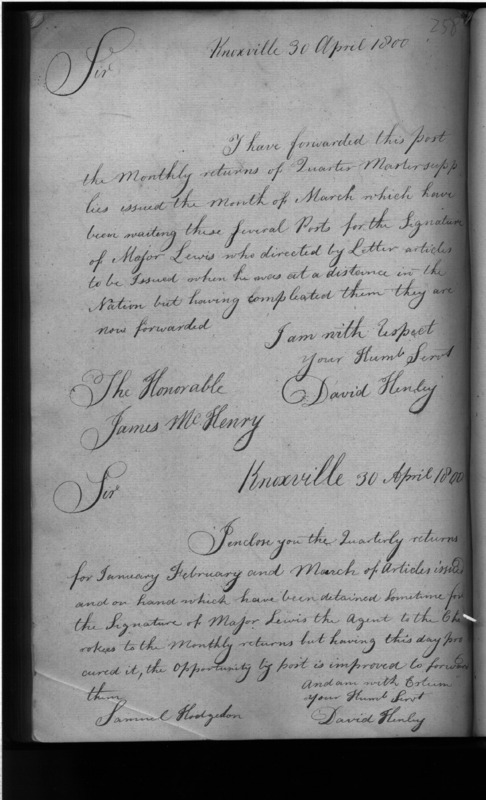 258
Knoxville 30 April 1800
Sir
I have forwarded this post
the Monthly returns of Quarter Master supp
lies issued the month of March which have
been waiting these several Posts for the Signature
of Major Lewis who directed by Letter articles
to be Issued when he was at a distance in the
Nation but having compleated them they are
now forwarded
I am with respect
your Humb Servt
David Henley
The Honorable
James McHenry
Knoxville 30 April 1800
Sir
I enclose you the Quarterly returns
for January February and March of Articles issued
and on hand which have been detained sometime for
the Signature of Major Lewis the Agent to the Che
rokees to the Monthly returns but having this day pro
cured it, the Opportunity by post is improved to forward
them
And am with Esteem
your Humb Servt
Samuel Hodgdon
David Henley